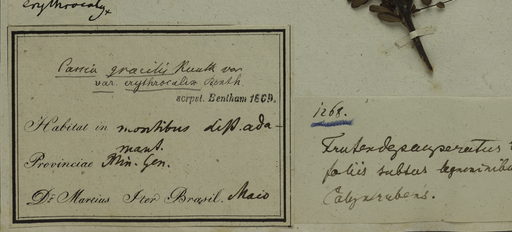 erythrocaly
Cassia gracilis Kunth var
var. erythrocalix Benth.
scrpst. Bentham 1869.
Habitat in montibus dist. ada-
mant.
Provinciae Min. Gen.
Dr. Martius Iter Brasil. Maio
1268.
Frutex depauperatus
foliis subtus
Calyx rubens.